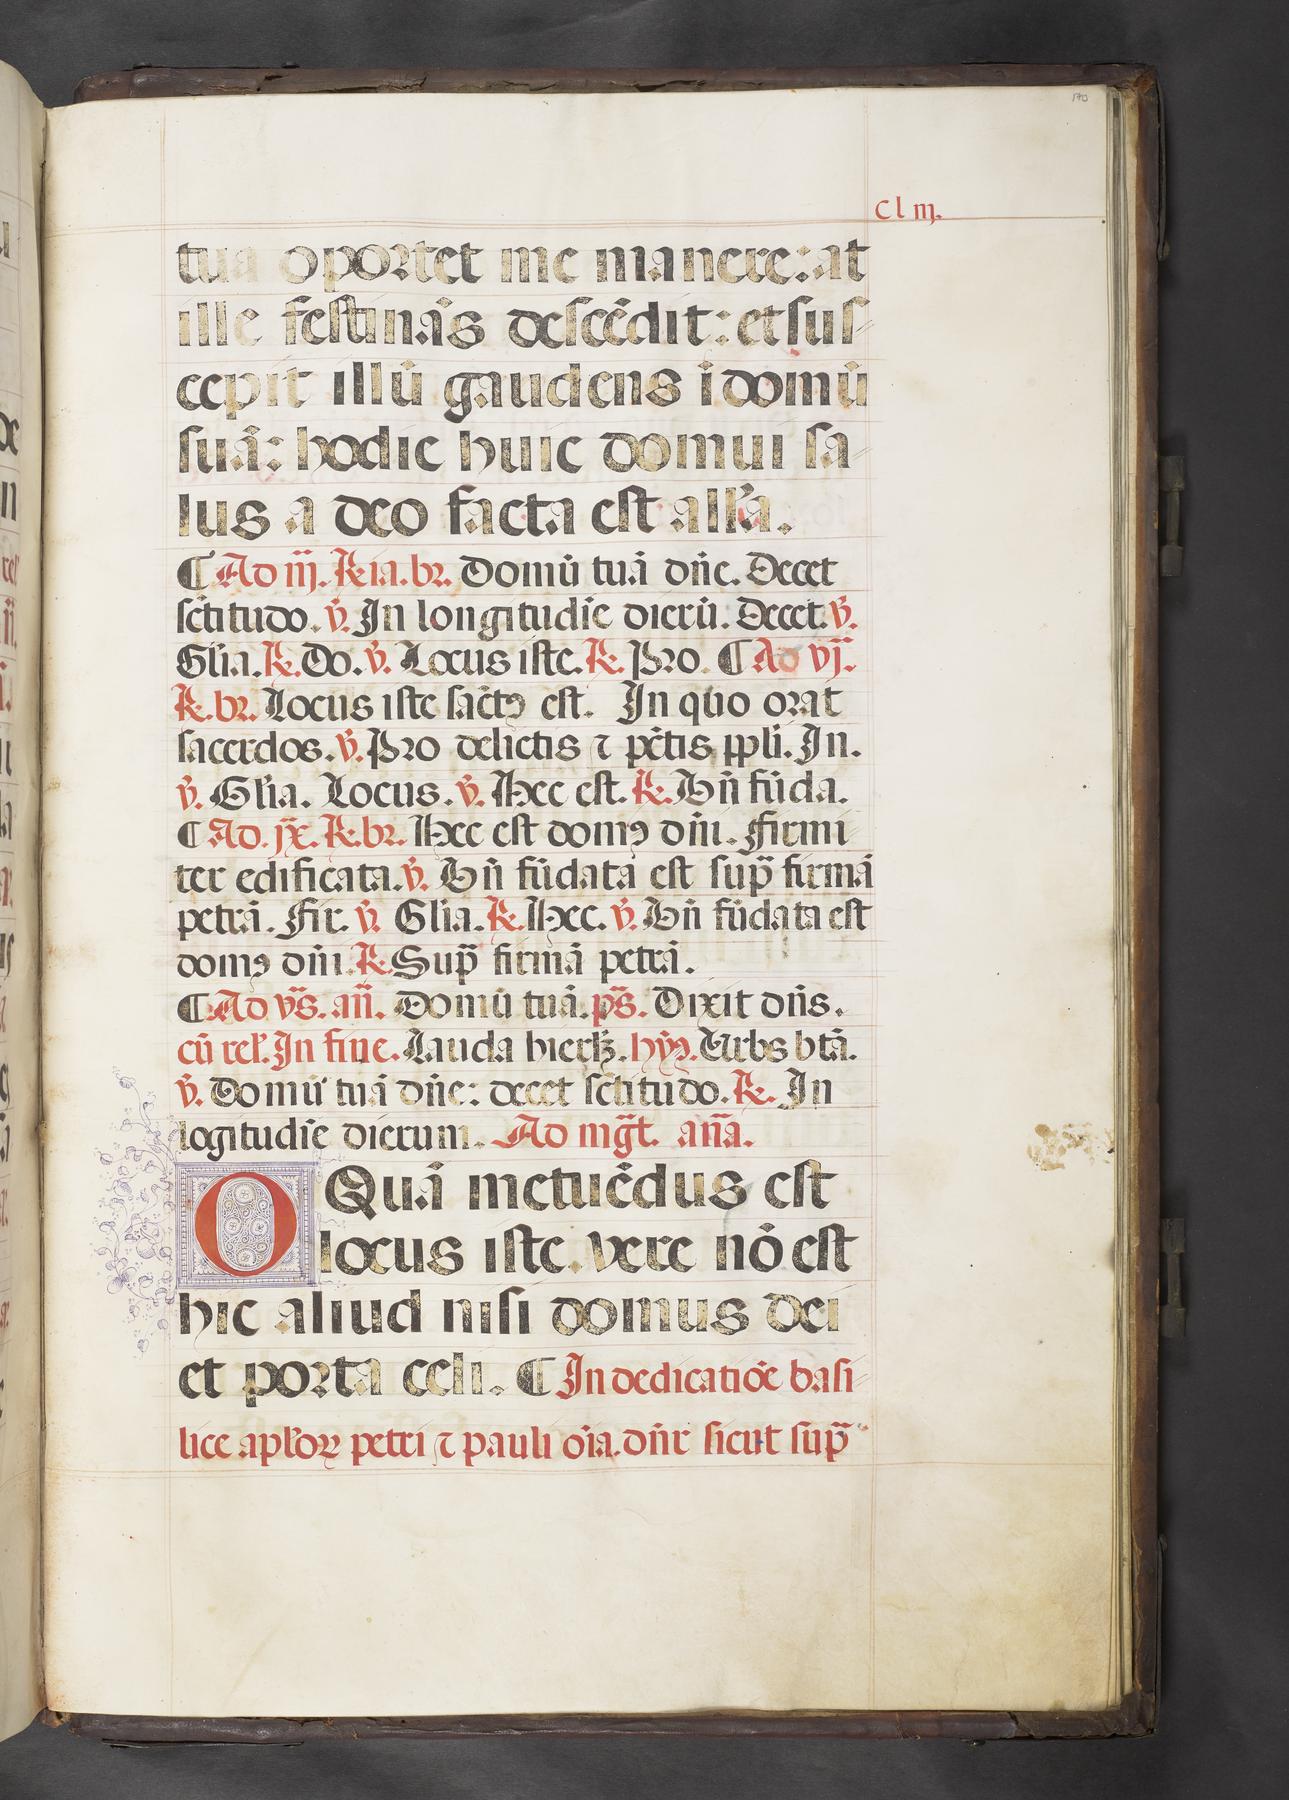 clm.
tua oportet me manere: at
ille festinās descēdit: et sus-
cepit illū gaudens ī domū
suā: hodie huic domui sa
lus a deo facta est alla.
¶ Ad iij. R. ia. br. Domū tuā dn̄e. Decet
sc̄titudo. v̄. In longitudīe dierū. Decet. v̄.
Glīa. R. Do. v̄. Locus iste. R. Pro. ¶ Ad vj.
R. br. Locus iste sāctꝰ est. In quo orat
sacerdos. v̄. Pro delictis ⁊ pc̄tis ppli. In.
v̄. Glīa. Locus. v̄. Hec est. R. Bn̄ fūda.
¶ Ad. jx. R. br. Hec est domꝰ dn̄i. Firmi
ter edificata. v̄. Bn̄ fūdata est sup̄ firmā
petrā. Fir. v̄. Glia. R. Hec. v̄. Bn̄ fūdata est
domꝰ dn̄i. R. Sup̄ firmā petrā.
¶ Ad vs̄. an̄. Domū tuā. ps̄. Dixit dn̄s.
cū rel'. In fine. Lauda hierlz. hyꝫ. Urbs btā.
v̄. Domū tuā dn̄e: decet sc̄titudo. R. In
lōgitudīe dierum. Ad mḡt. an̄a.
O Quā metuēdus est
locus iste. vere nō est
hic aliud nisi domus dei
et porta celi. ¶ In dedicatiōe basi
lice apl'oꝝ petri ⁊ pauli oīa. dn̄r sicut sup̄